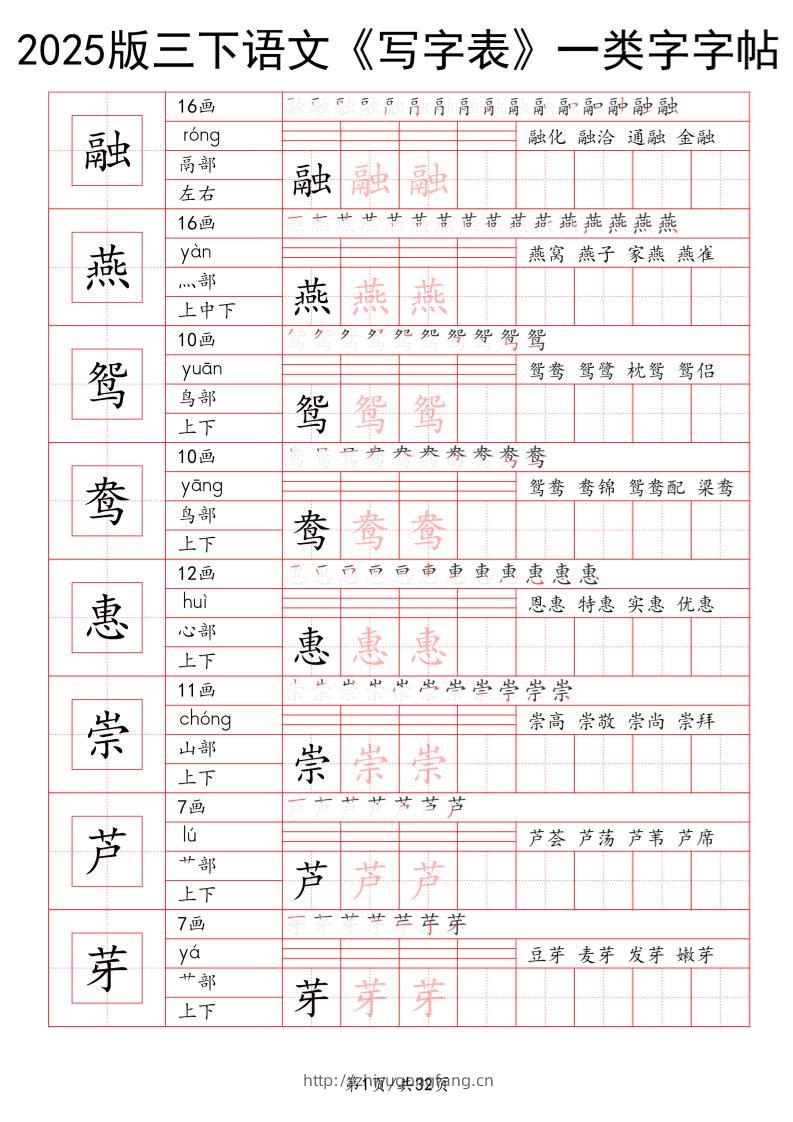 2025版三下语文《写字表》一类字字帖
融
16画
róng
融化 融洽 通融 金融
鬲部
左右
融 融 融
燕
16画
yàn
燕窝 燕子 家燕 燕雀
灬部
上中下
燕 燕 燕
鸳
10画
yuān
鸳鸯 鸳鹭 枕鸳 鸳侣
鸟部
上下
鸳 鸳 鸳
鸯
10画
yāng
鸳鸯 鸯锦 鸳鸯配 梁鸯
鸟部
上下
鸯 鸯 鸯
惠
12画
huì
恩惠 特惠 实惠 优惠
心部
上下
惠 惠 惠
崇
11画
chóng
崇高 崇敬 崇尚 崇拜
山部
上下
崇 崇 崇
芦
7画
lú
芦荟 芦荡 芦苇 芦席
艹部
上下
芦 芦 芦
芽
7画
yá
豆芽 麦芽 发芽 嫩芽
艹部
上下
芽 芽 芽
第1页/共32页